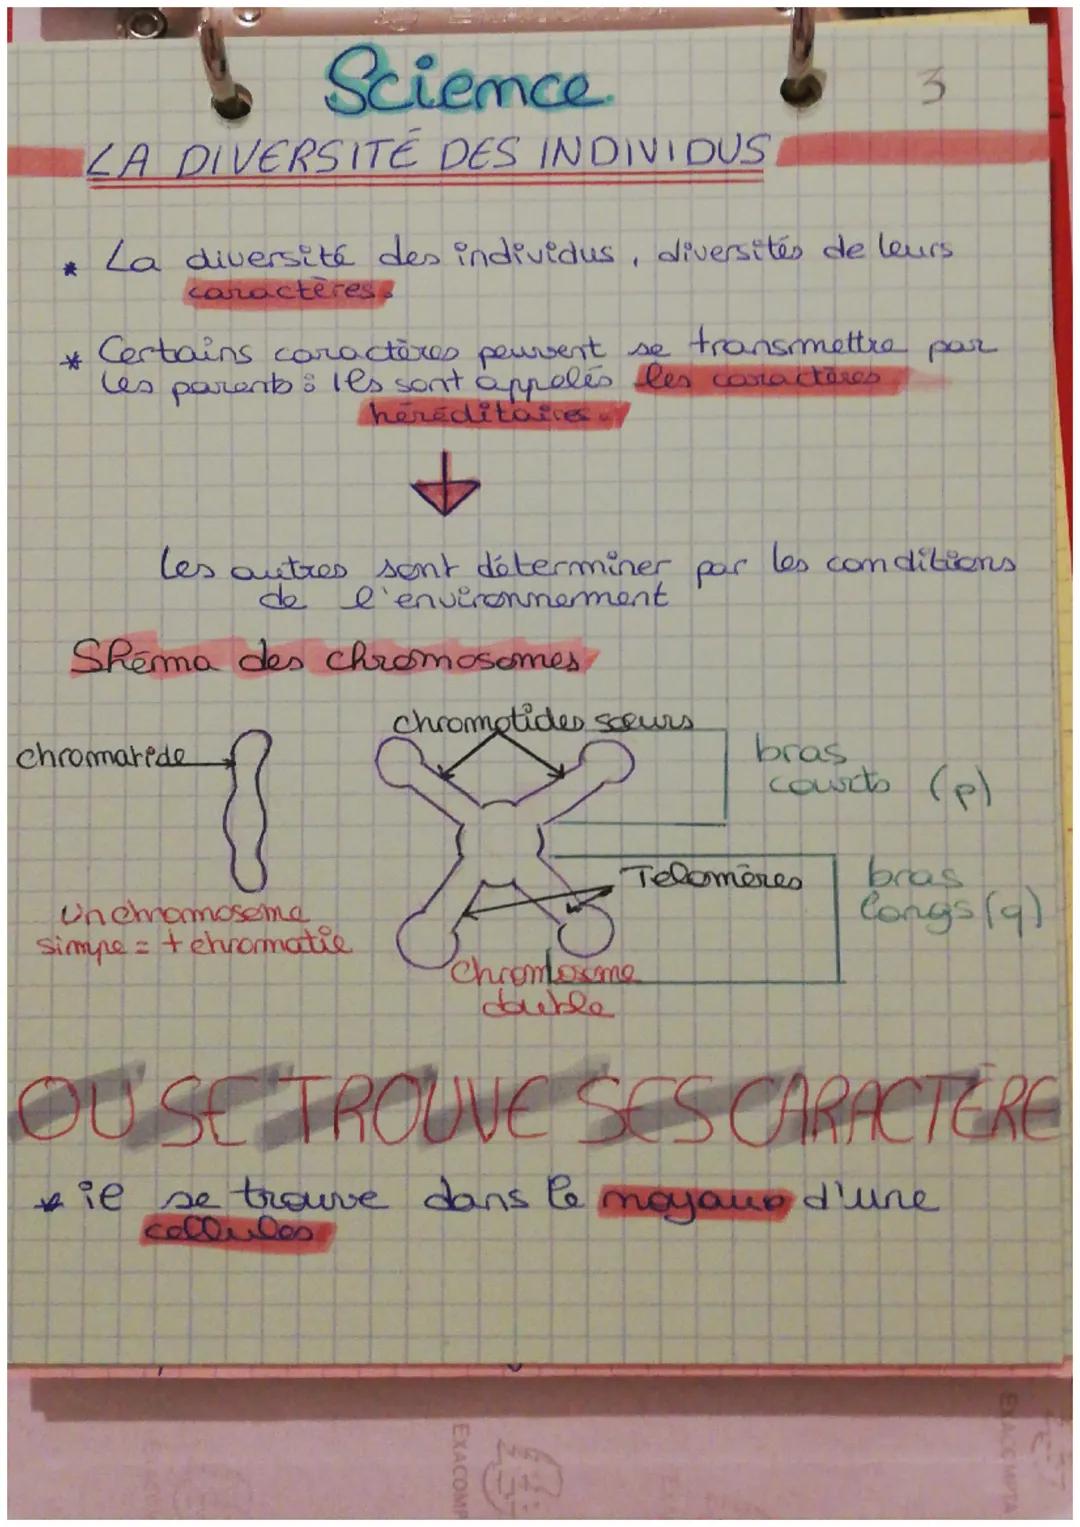 Science
3
LA DIVERSITÉ DES INDIVIDUS
* La diversité des individus, diversités de leurs
caractères.
* Certains caractères peuvent se transmettre par
les parents : Ils sont appelés les caractères
héréditaires.
les autres sont déterminer par les conditions
de l'environnement
Shéma des chromosomes
chromatides sœurs
chromatide
bras
courts (p)
Telomères
bras
longs (q)
Un chromosome
simpe = + chromatie
Chromosme
double
OU SE TROUVE SES CARACTÈRE
* il se trouve dans le noyaux d'une
cellules
EXACOMP
EXACOMPTA